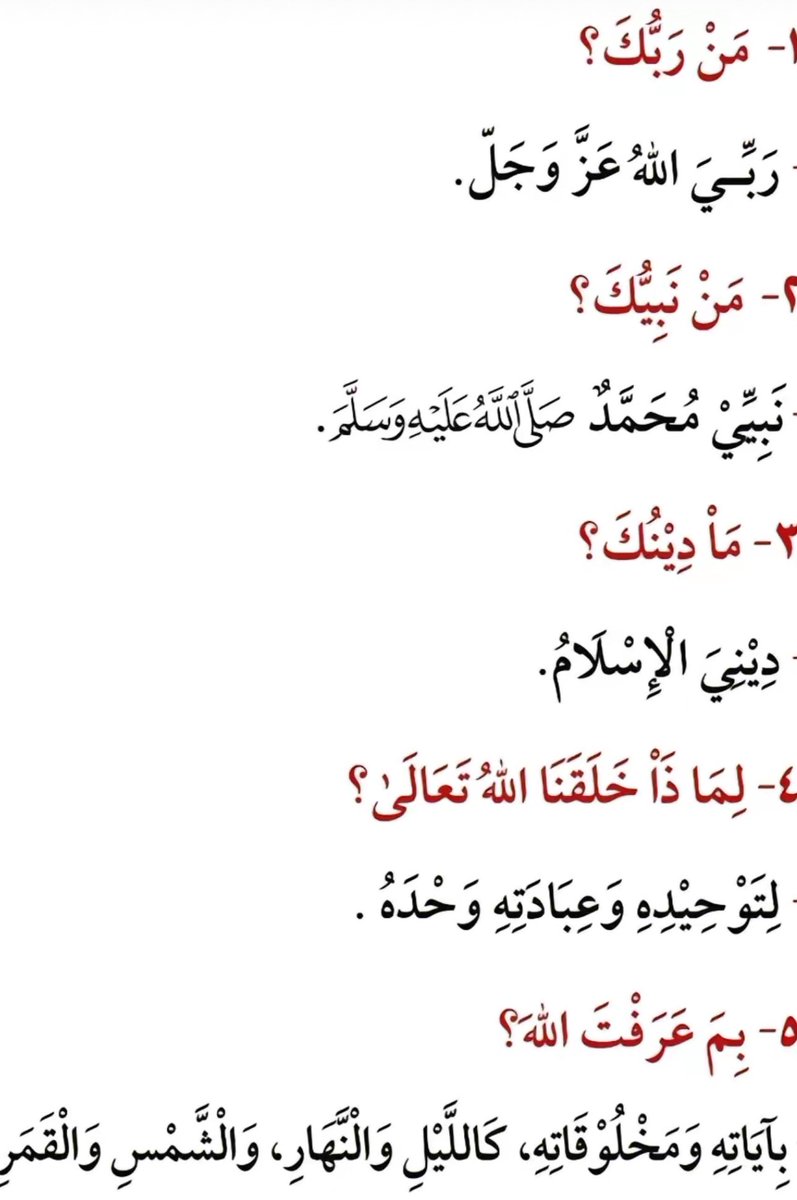 ١- مَنْ رَبُّكَ؟
- رَبِّـيَ اللهُ عَزَّ وَجَلّ.
٢- مَنْ نَبِيُّكَ؟
- نَبِيِّيْ مُحَمَّدٌ صَلَّى اللَّهُ عَلَيْهِ وَسَلَّمَ.
٣- مَاْ دِيْنُكَ؟
- دِيْنِيَ الْإِسْلَامُ.
٤- لِمَا ذَاْ خَلَقَنَا اللهُ تَعَالَىٰ؟
- لِتَوْحِيْدِهِ وَعِبَادَتِهِ وَحْدَهُ .
٥- بِمَ عَرَفْتَ اللهَ؟
بِآيَاتِهِ وَمَخْلُوْقَاتِهِ، كَاللَّيْلِ وَالْنَّهَارِ، وَالْشَّمْسِ وَالْقَمَرِ